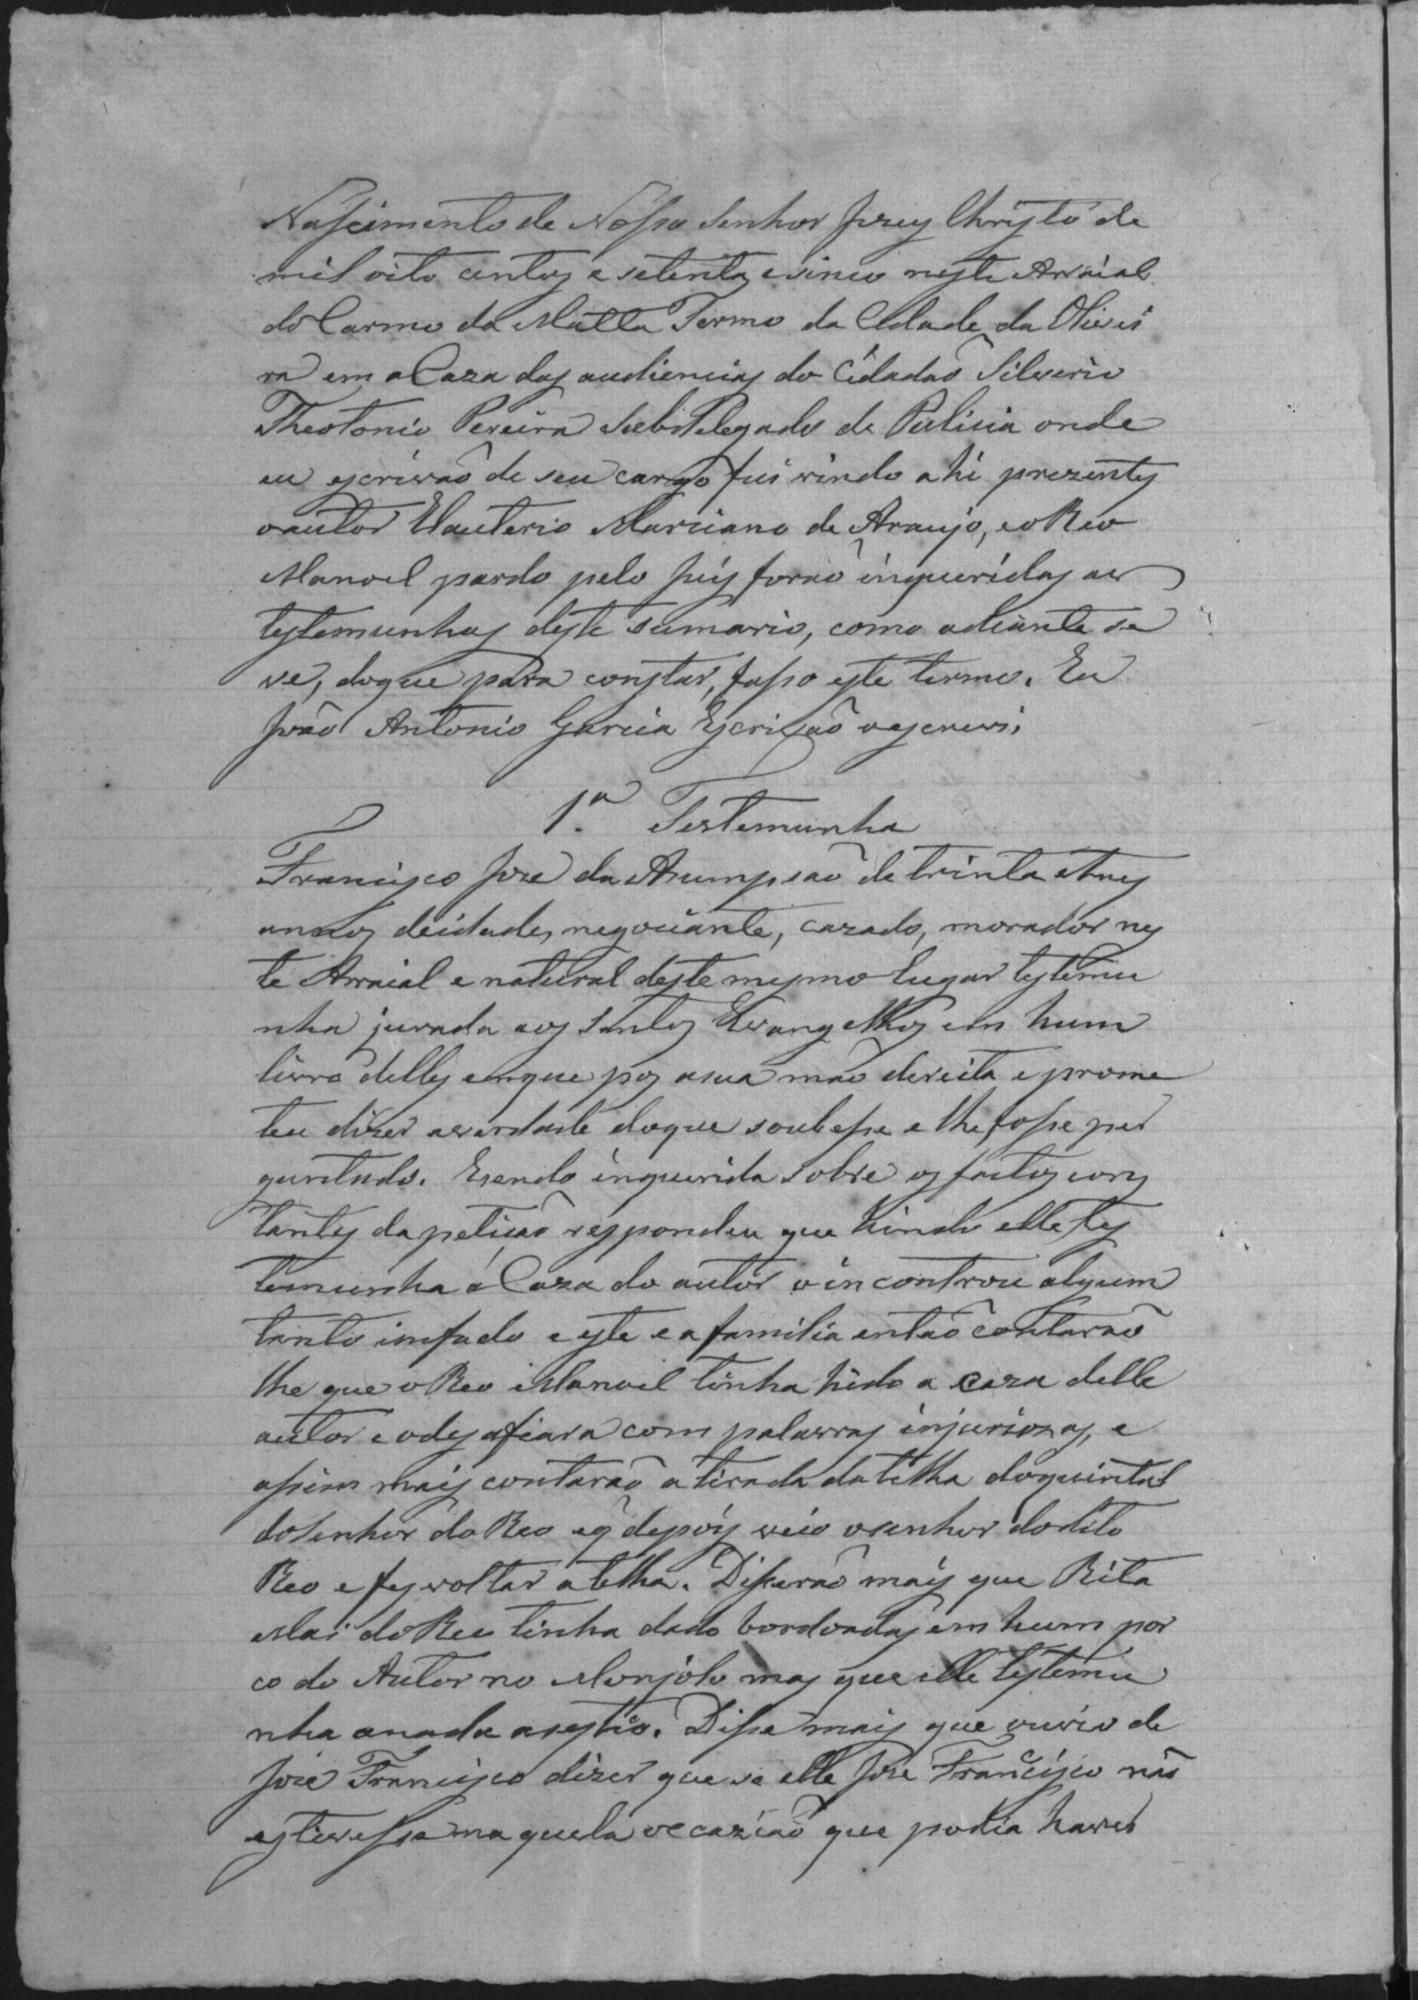 Nascimento de Nosso Senhor Jezus Christo de
mil oito centos e setenta e sinco neste Arraial
do Carmo da Matta Termo da Cidade da Olivei
ra em a Caza das audiencias do Cidadaõ Silverio
Theotonio Pereira Subdelegado de Pulisia onde
eu escrivaõ de seu cargo fui vindo ahi prezentes
o autor Elauterio Marciano de Araujo, e o Reo
Manoel pardo pelo Juis foraõ inqueridas as
testemunhas deste sumario, como adiante se
ve, do que para constar, fasso este termo. Eu
Joaõ Antonio Garcia Escrivaõ o escrevi.
1.ª Testemunha
Francisco Jose da Asumpsaõ de trinta e tres
annos de idade, negociante, cazado, morador nes
te Arraial e natural deste mesmo lugar testemu
nha jurada aos Santos Evangelhos em hum
livro delles em que pos a sua maõ dereita e prome
teu dizer a verdade do que soubesse e lhe fosse per
guntado. E sendo inquerida sobre os factos cons
tantes da petisaõ respondeu que hindo elle tes
temunha á Caza do autor o incontrou algum
tanto imfado e este e a familia entaõ contaraõ
lhe que o Reo Manoel tinha hido a caza delle
autor e o desafiara com palavras injuriozas, e
assim mais contaraõ a tirada da telha do quintal
do Senhor do Reo e q̃ depois veio o senhor do dito
Reo e fes voltar a telha. Disseraõ mais que Rita
Mai do Reo tinha dado bordoadas em hum por
co do Autor no Monjolo mas que elle testemu
nha a nada asestio. Disse mais que ouvio de
Jose Francisco dizer que se elle Jose Francisco naõ
estivesse naquela occaziaõ que podia haver